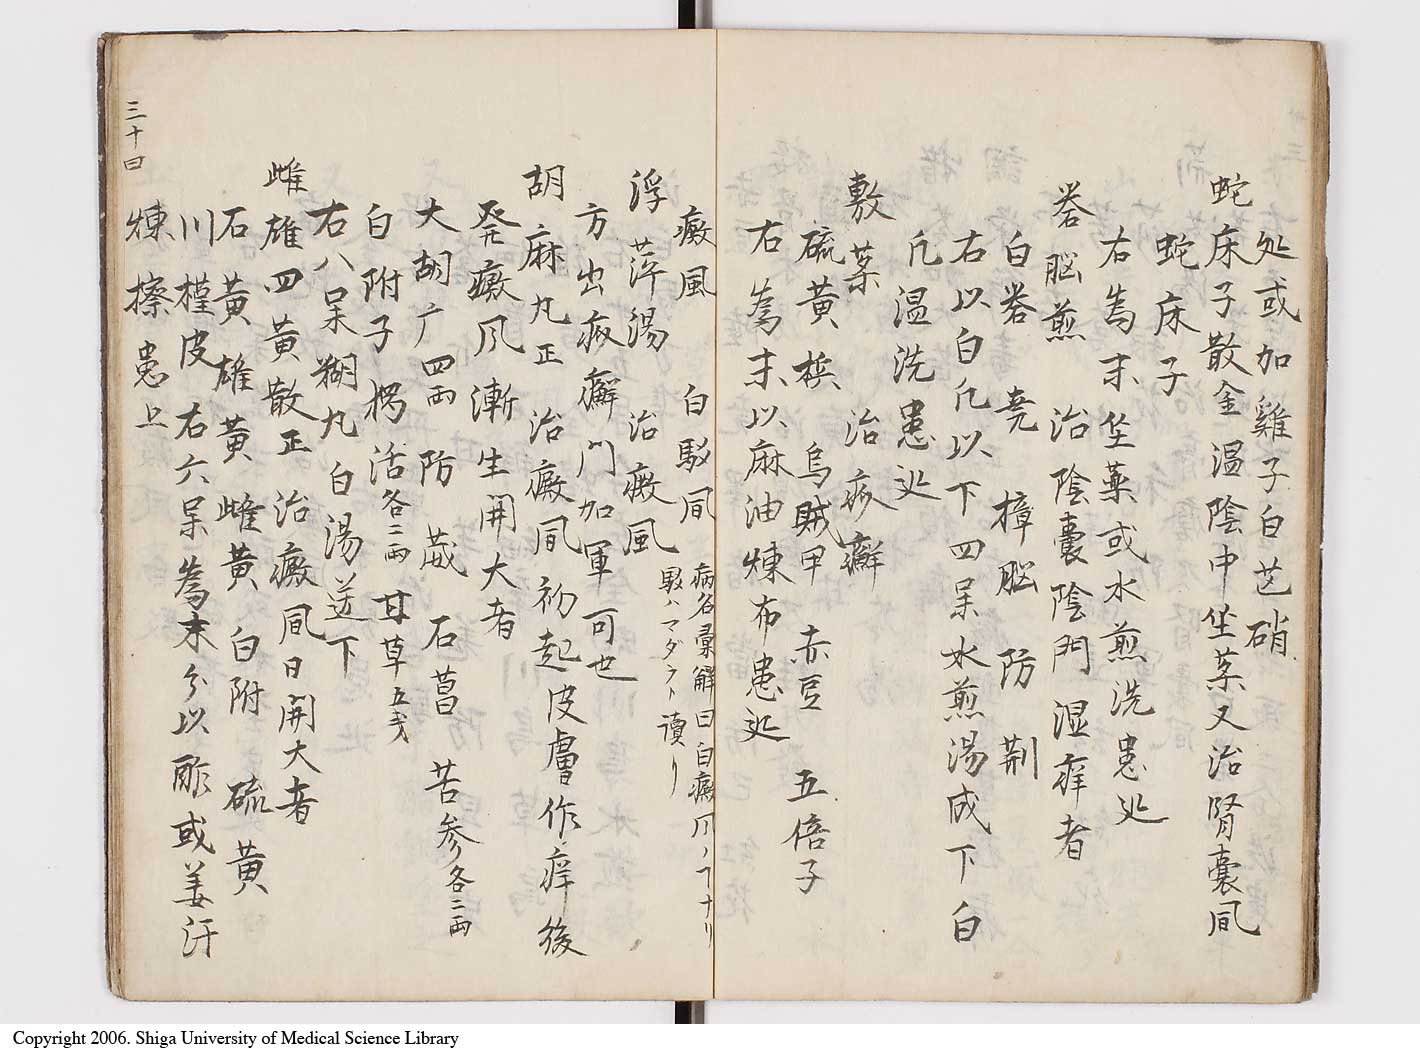 処或加雞子白芒硝
蛇床子散金 温陰中坐薬又治腎嚢風
蛇床子
右為末坐薬或水煎洗患処
礬脳煎 治陰嚢陰門湿痒者
白礬 尭 樟脳 防 荊
右以白凡以下四味水煎湯成下白
凡温洗患処
敷薬 治疥癬
硫黄 梹 烏賊甲 赤豆 五倍子
右為末以麻油煉布患処
癜風 白駁風 病名彙解曰白癜風ノヿナリ
駁ハマダラト讀リ
浮萍湯 治癜風
方出疥癬門加軍可也
胡麻丸正 治癜風初起皮膚作痒後
発癜風漸生開大者
大胡广四両 防 葳 石菖 苦参各二両
白附子 羗活各二両 甘草五戔
右八味糊丸白湯送下
雌雄四黄散正 治癜風日開大者
石黄 雄黄 雌黄 白附 硫黄
川槿皮 右六味為末分以酢或姜汁
煉擦患上
三十四
Copyright 2006. Shiga University of Medical Science Library